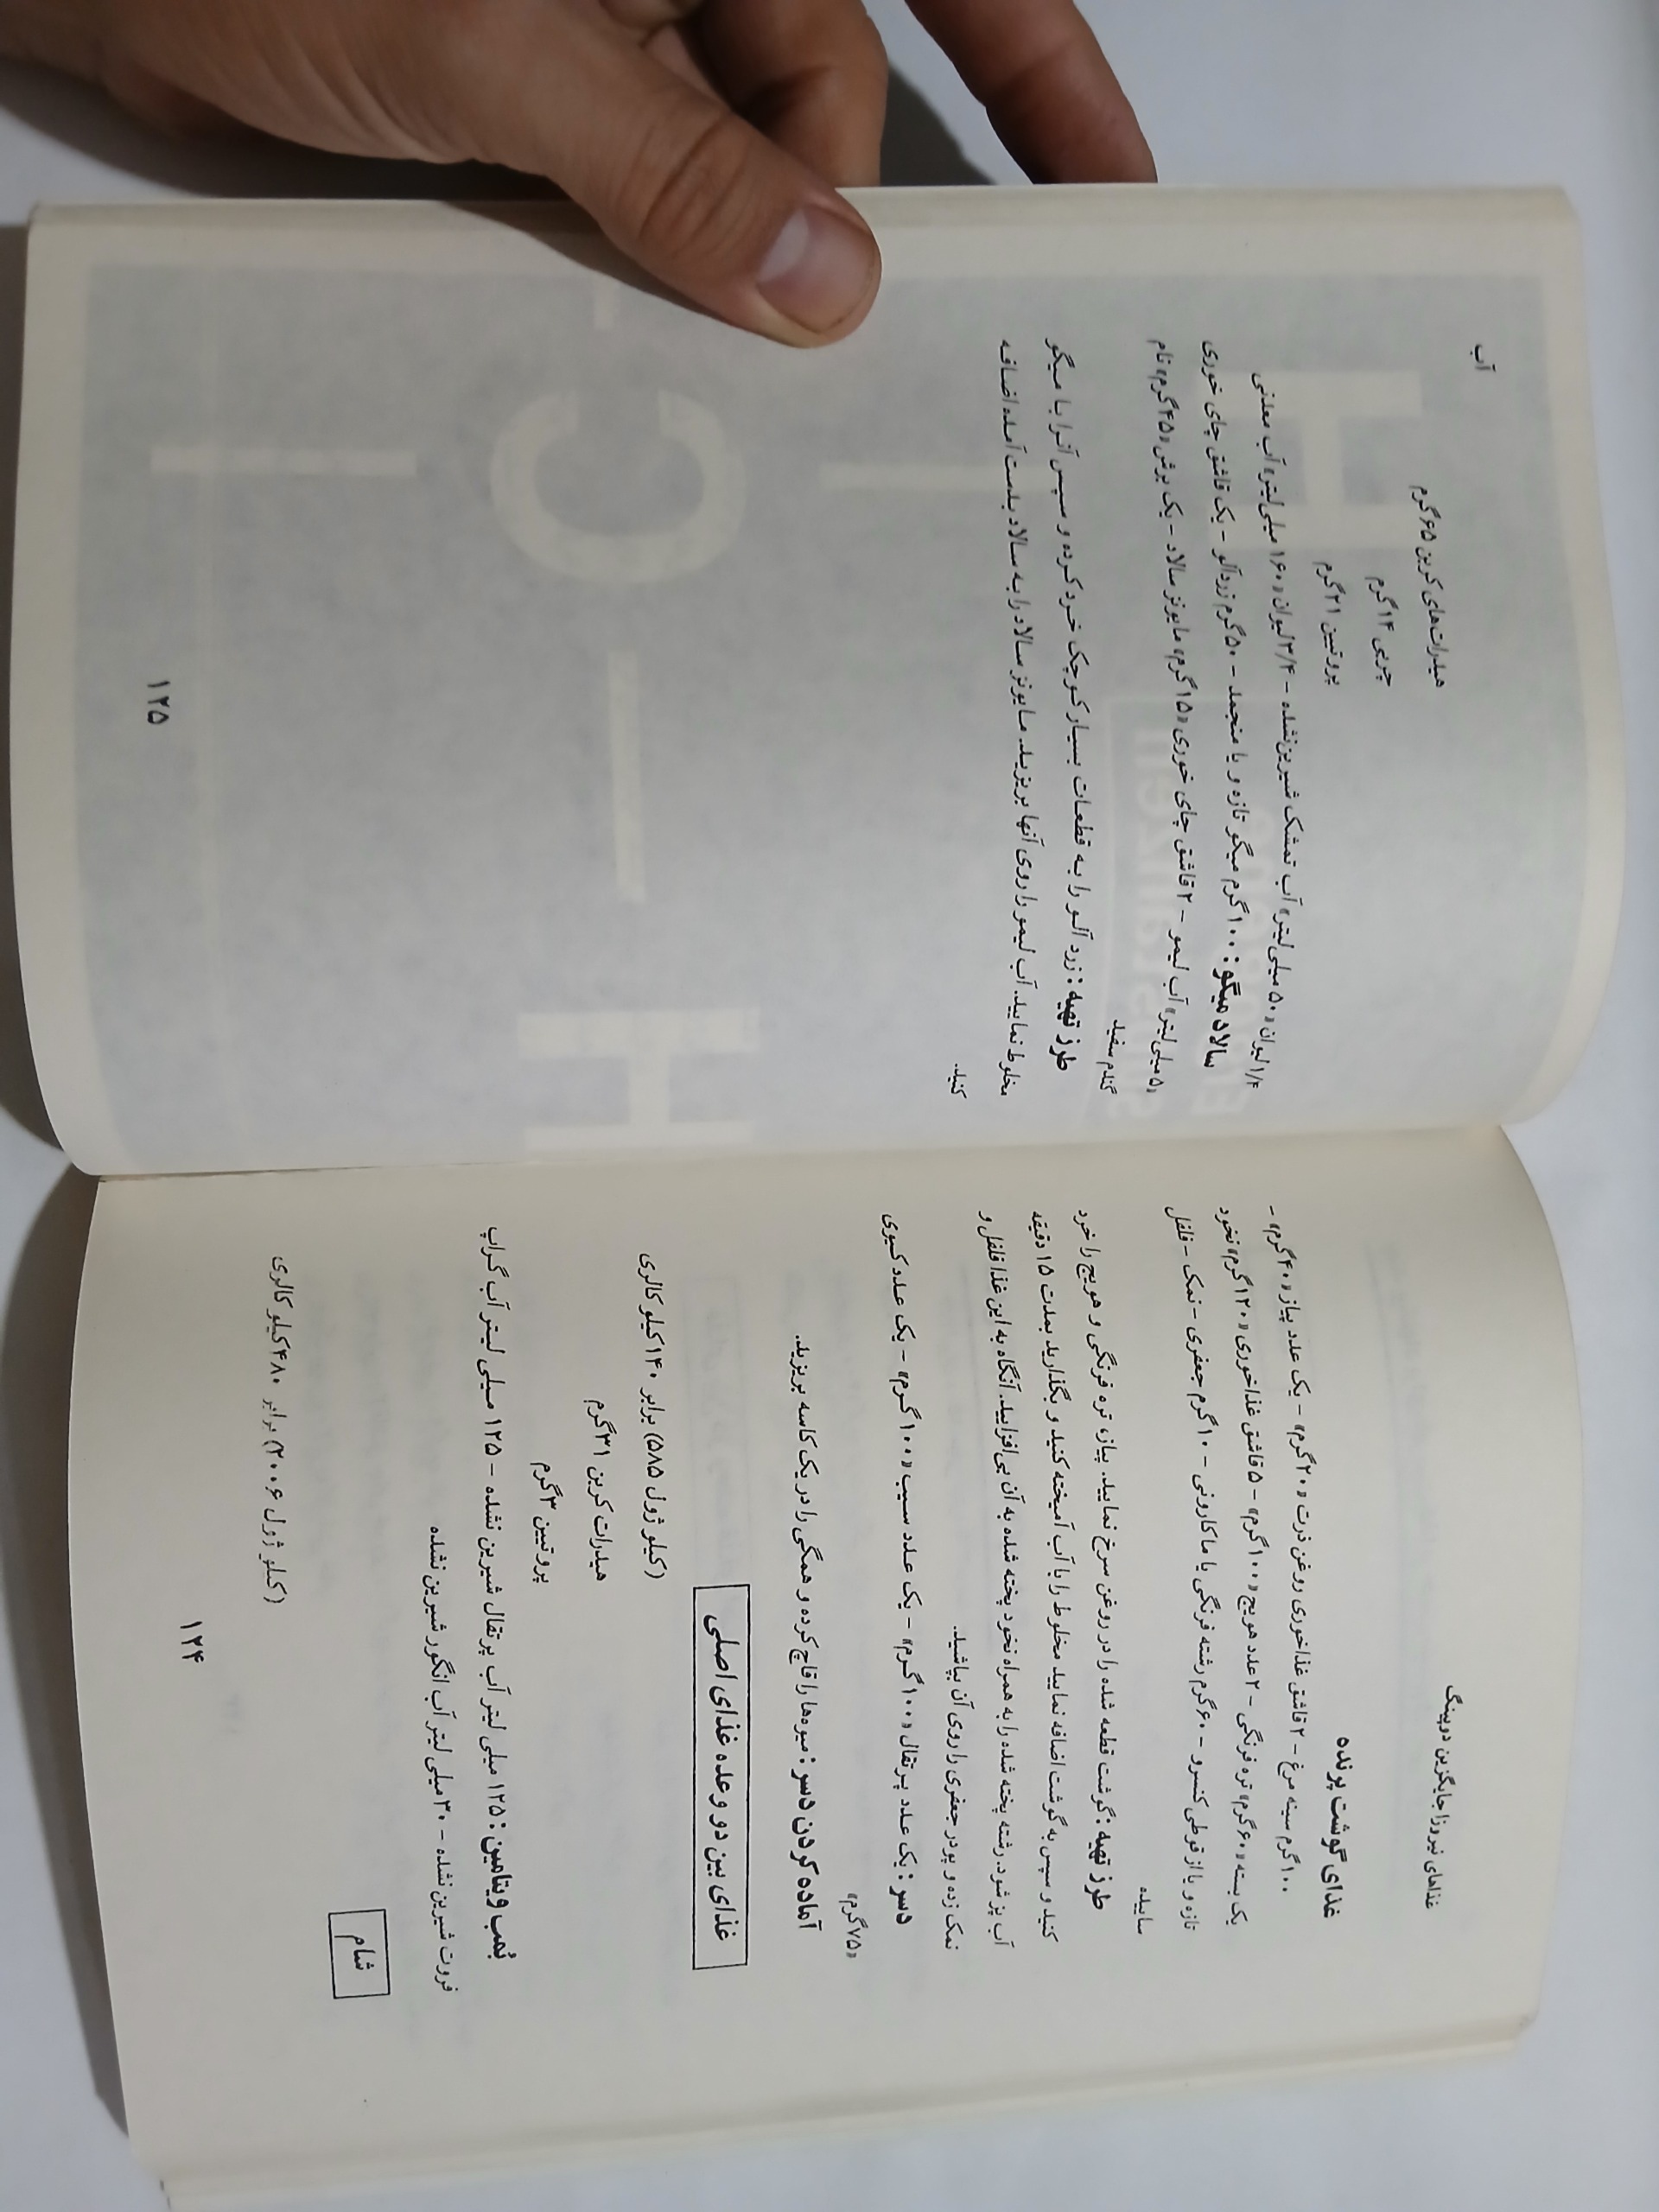 غذاهای نیروزا جایگزین دوپینگ
غذای گوشت پرنده
۱۰۰ گرم سینه مرغ - ۲ قاشق غذاخوری روغن ذرت «۲۰ گرم» - یک عدد پیاز «۴۰ گرم» -
یک بسته «۶۰ گرم» تره فرنگی - ۲ عدد هویج «۱۰۰ گرم» - ۵ قاشق غذاخوری «۱۲۰ گرم» نخود
تازه و یا از قوطی کنسرو - ۶۰ گرم رشته فرنگی یا ماکارونی - ۱۰ گرم جعفری - نمک - فلفل
ساییده
طرز تهیه: گوشت قطعه شده را در روغن سرخ نمایید. پیاز، تره فرنگی و هویج را خرد
کنید و سپس به گوشت اضافه نمایید مخلوط را با آب آمیخته کنید و بگذارید بمدت ۱۵ دقیقه
آب پز شود. رشته پخته شده را به همراه نخود پخته شده به آن بی‌افزایید. آنگاه به این غذا فلفل و
نمک زده و پودر جعفری را روی آن بپاشید.
دسر: یک عدد پرتقال «۱۰۰ گرم» - یک عدد سیب «۱۰۰ گرم» - یک عدد کیوی
«۷۵ گرم»
آماده کردن دسر: میوه‌ها را قاچ کرده و همگی را در یک کاسه بریزید.
غذای بین دو وعده غذای اصلی
(کیلو ژول ۵۸۵) برابر ۱۴۰ کیلو کالری
هیدرات کربن ۳۱ گرم
پروتیین ۳ گرم
بُمب ویتامین: ۱۲۵ میلی لیتر آب پرتقال شیرین نشده - ۱۲۵ میلی لیتر آب گراپ
فروت شیرین نشده - ۳۰ میلی لیتر آب انگور شیرین نشده
شام
(کیلو ژول ۲۰۰۶) برابر ۴۸۰ کیلو کالری
۱۲۴
آب
هیدرات‌های کربن ۶۵ گرم
چربی ۱۴ گرم
پروتیین ۲۱ گرم
۱/۴ لیوان «۵۰ میلی‌لیتر» آب تمشک شیرین نشده - ۳/۴ لیوان «۱۶۰ میلی‌لیتر» آب معدنی
سالاد میگو: ۱۰۰ گرم میگو تازه و یا منجمد - ۵۰ گرم زردآلو - یک قاشق چای خوری
«۵ میلی لیتر» آب لیمو - ۲ قاشق چای خوری «۱۵ گرم» مایونز سالاد - یک برش «۴۵ گرم» نام
گندم سفید
طرز تهیه: زرد آلو را به قطعات بسیار کوچک خرد کرده و سپس آنرا با میگو
مخلوط نمایید. آب لیمو را روی آنها بریزید. مایونز سالاد را به سالاد بدست آمده اضافه
کنید.
۱۲۵